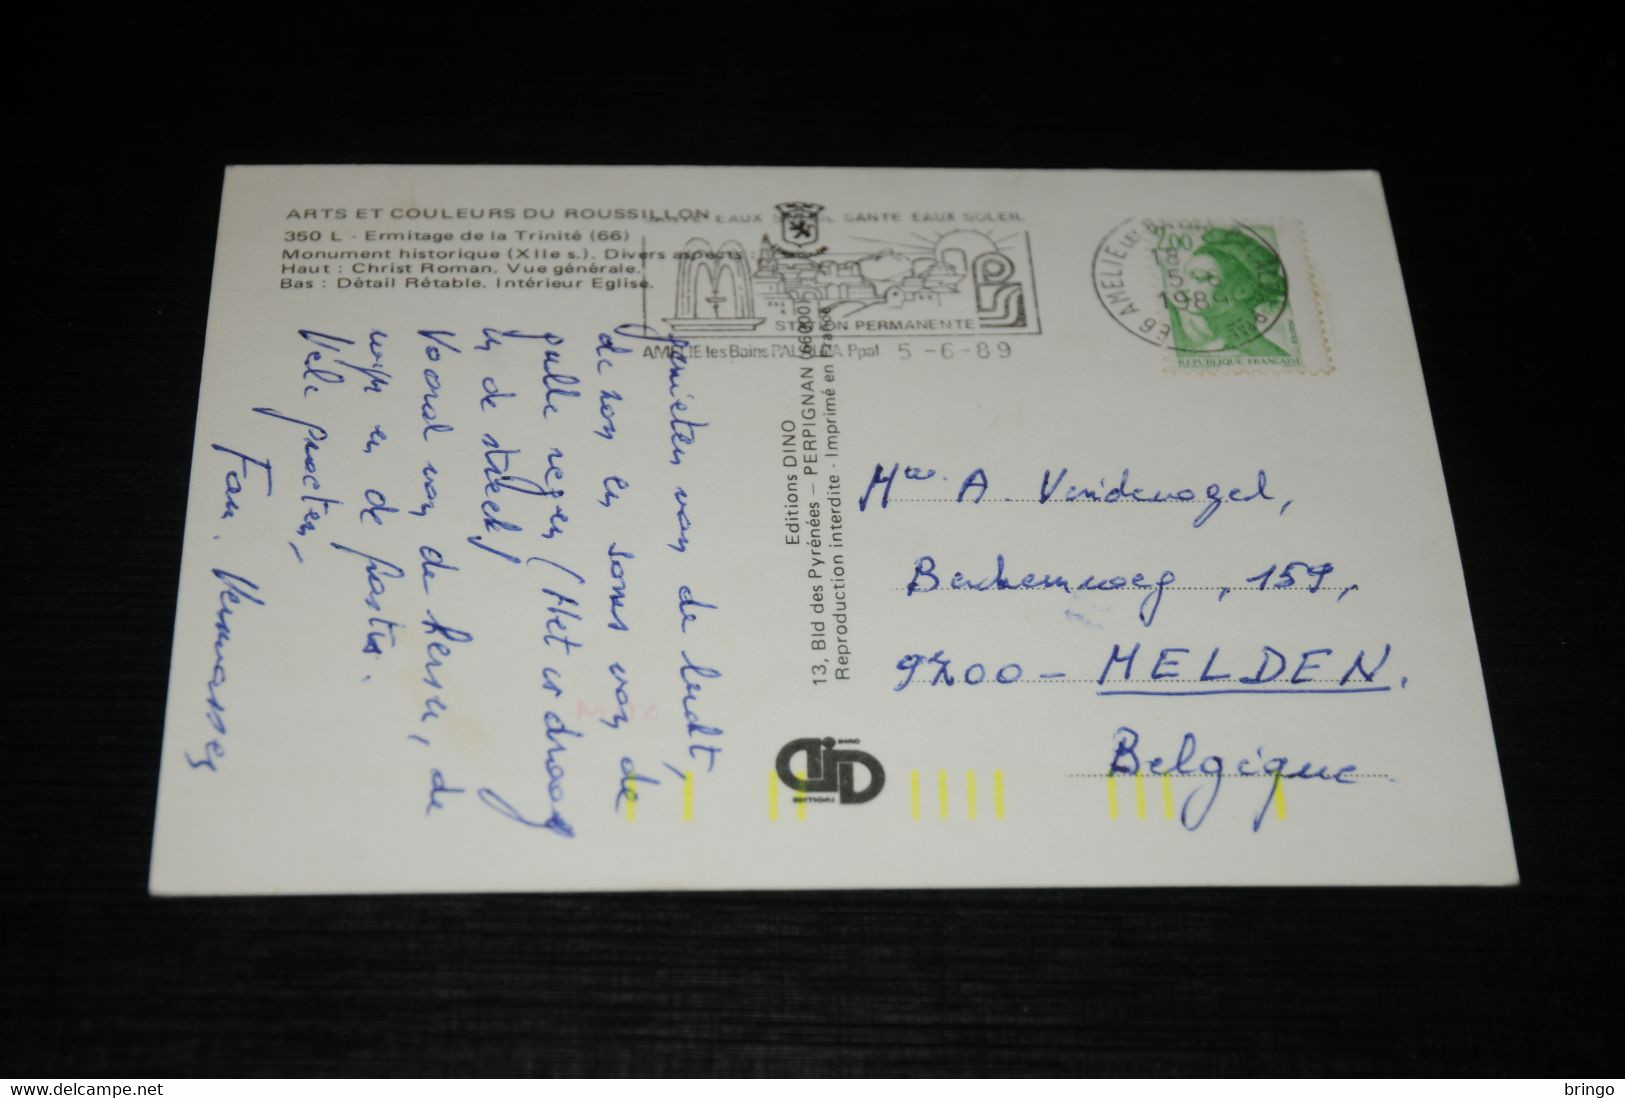 ARTS ET COULEURS DU ROUSSILLON
350 L - Ermitage de la Trinité (66)
Monument historique (XIIe s.). Divers aspects :
Haut : Christ Roman. Vue générale.
Bas : Détail Rétable. Intérieur Eglise.
SANTE EAUX SOLEIL SANTE EAUX SOLEIL
STATION PERMANENTE
AMELIE les Bains PALALDA Ppal 5 - 6 - 89
66 AMELIE LES BAINS PALALDA
18
5 - 6
1989
2,00
REPUBLIQUE FRANÇAISE
genieten van de lucht,
de zon en soms van de
regen (Het is droog
in de streek)
Vooral van de kersen, de
wijn en de pastis.
Vele groeten,
Fam.
Editions DINO
13, Bld des Pyrénées - PERPIGNAN (66000)
Reproduction interdite - Imprimé en France
DINO
EDITIONS
A. Vindevogel,
Berchemweg, 159,
9700 - MELDEN.
Belgique
bringo